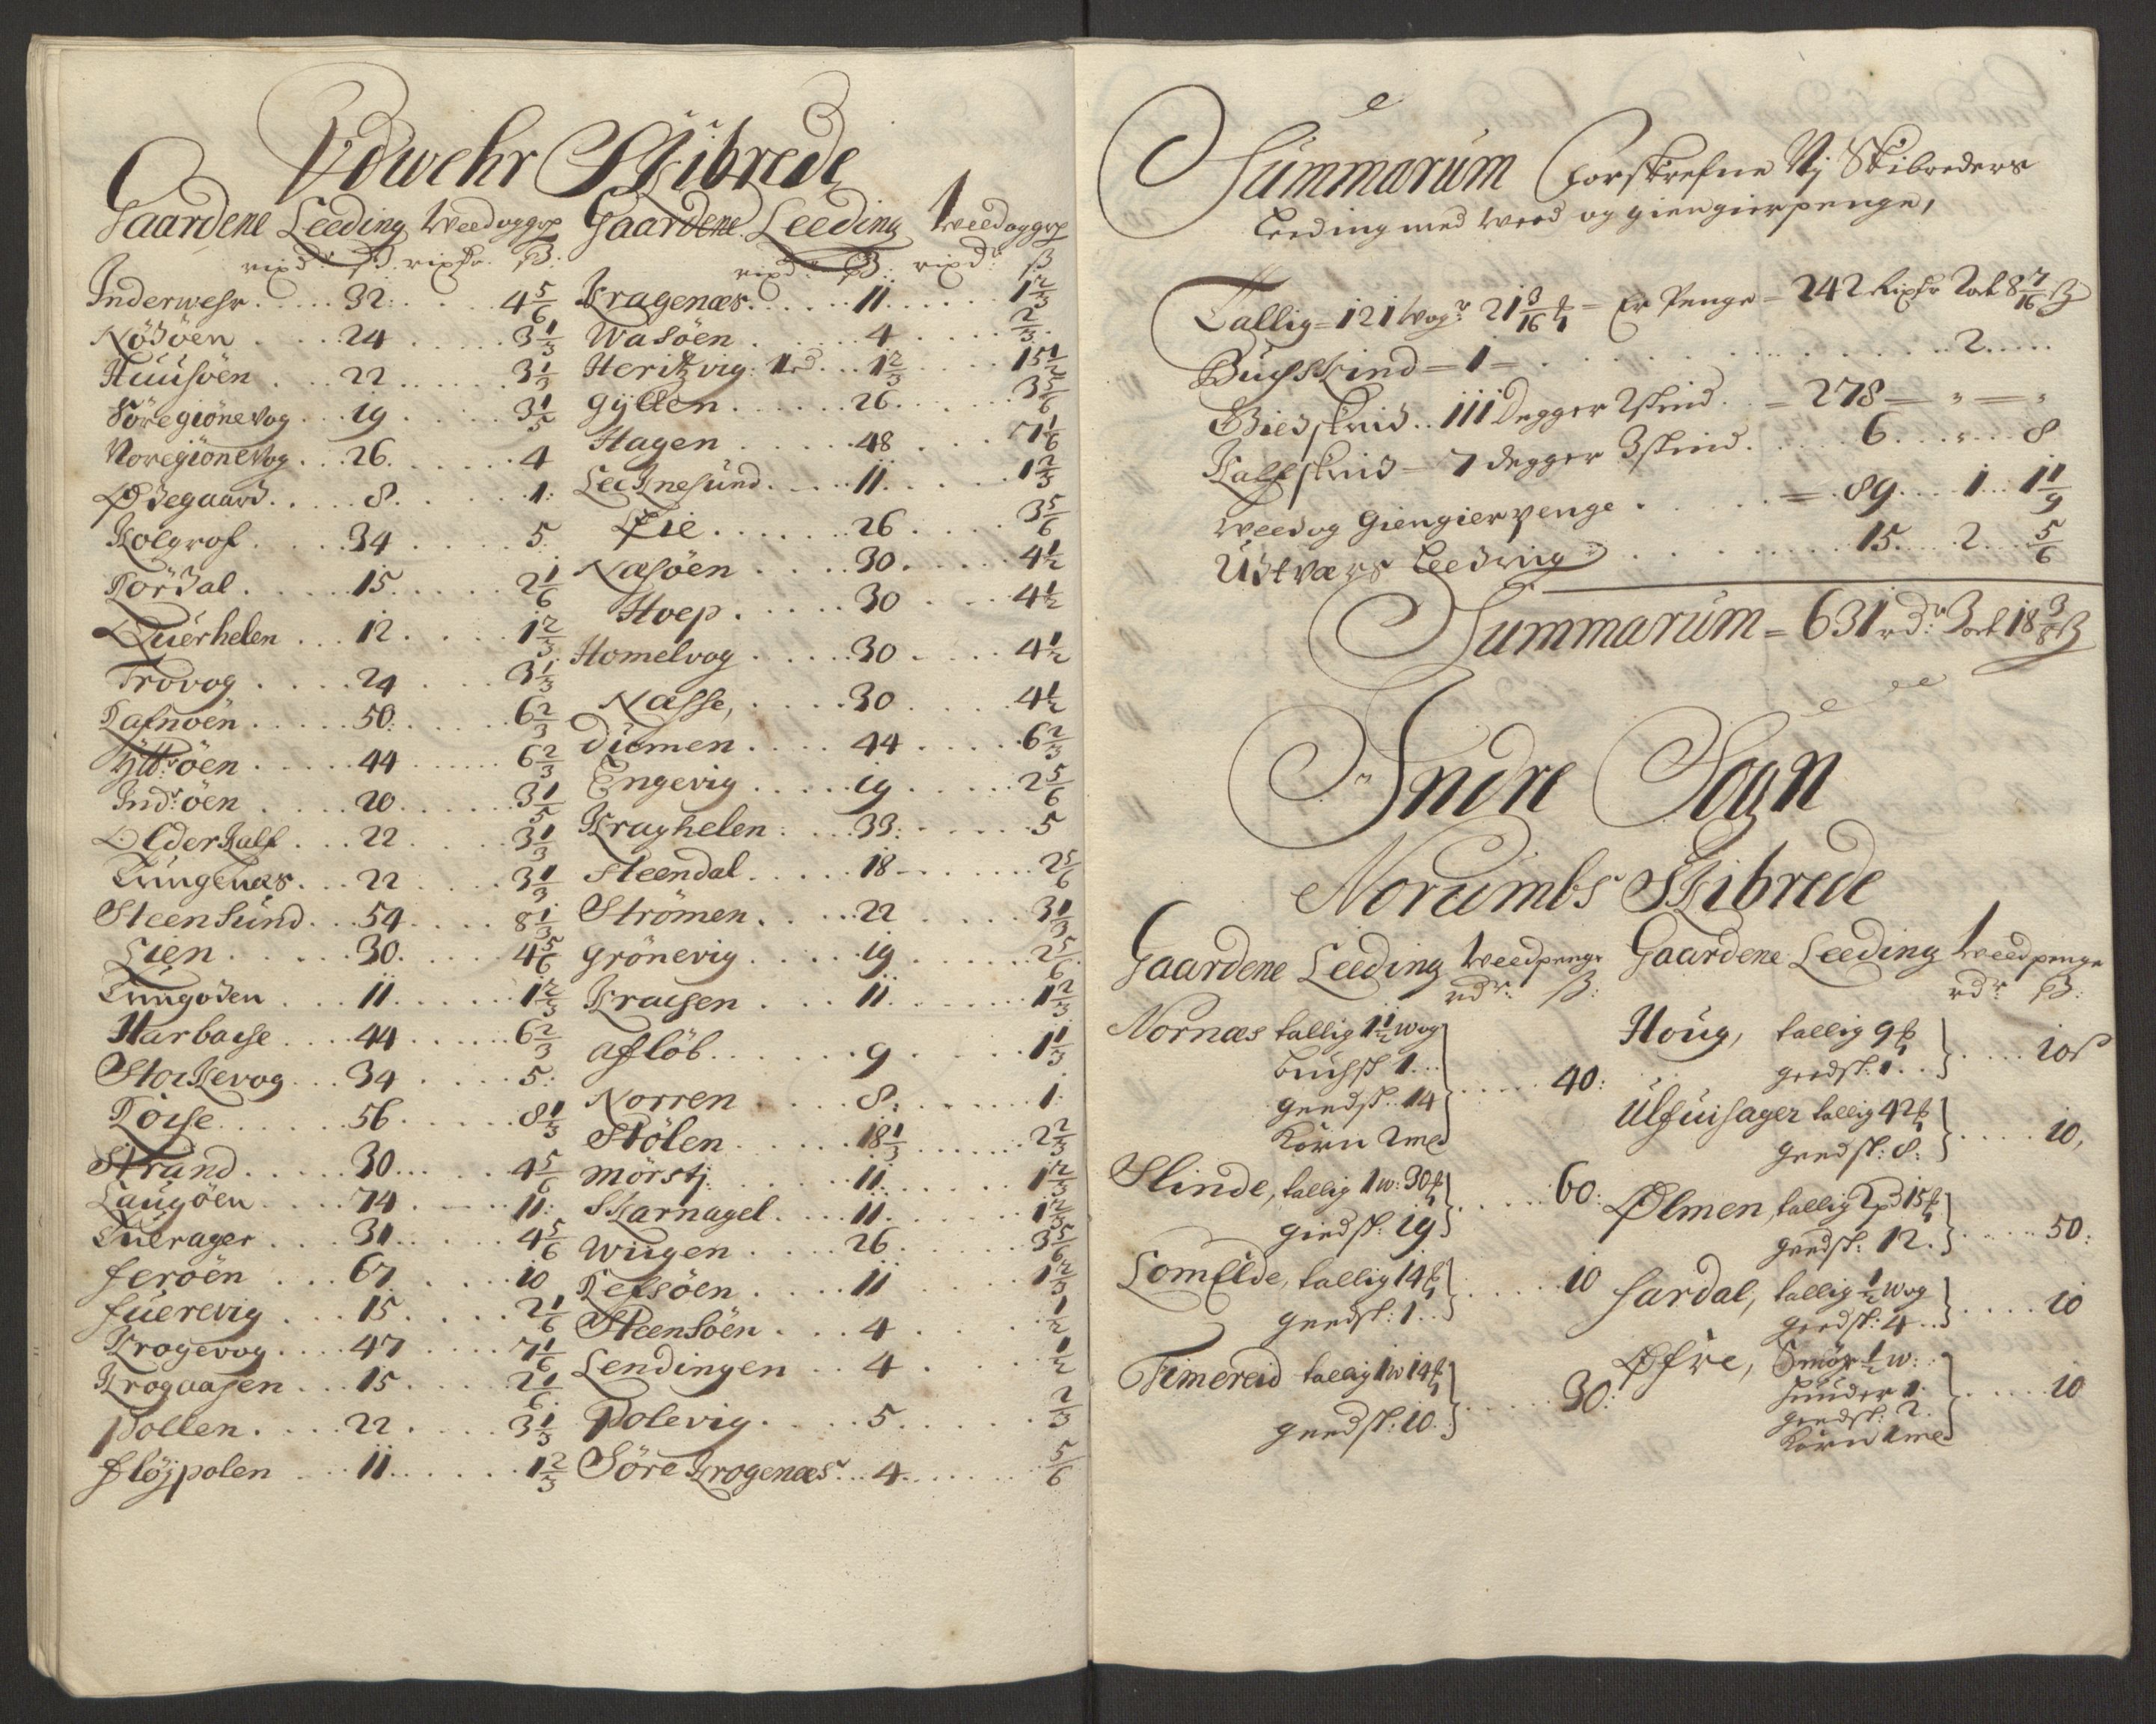 Udwehr Skibrede
Gaardene Leeding Weed og grp
rixdr ß. rixdr. ß:
Inderwehr 32: 4 5/6
Nödöen 24 3 1/3
Huusöen 22 3 1/3
Söregiönevog 19 3 1/5
Noregiönevog 26 4
Ødegaard 8. 1:
Kolgrof 34 5
Tördal 15 2 1/6
Quérhelen 12 1 2/3
Trovog 24 3 1/3
Rafnöen 50: 6 2/3
Ÿttröen 44 6 2/3
Indröen 20 3 1/5
Olderkalf 22 3 1/3
Tungenæs 22 3 1/3
Steensund 54 8 1/3
Lien 30. 4 5/6
Lungöden 11 1 2/3
Harbache 44 6 2/3
Stochevog 34 5:
Röise 56 8 1/3
Strand 30 4 5/6
Laugöen 74 11:
Tuerager 31 4 5/6
Feröen 67 10
Fuerevig 15 2 1/6
Krogevog 47 7 1/6
Krogaasen 15 2 1/6
Pollen 22 3 1/3
Flöjpolen 11 1 2/3
Gaardene Leeding Weed og grp
rixdr ß: rixdr ß
Kragenæs 11 1 2/3
Wasöen 4 2/3
Heritzvig: 1 rd 1 2/3 15 1/2
Gÿllen 26 3 5/6
Hagen 48 7 1/6
Lecknesund 11 1 2/3
Eie 26 3 5/6
Næsöen 30 4 1/2
Hoep 30 4 1/2
Homelvog 30 4 1/2
Næsse, 30 4 1/2
Diömen 44 6 2/3
Engevig 19 2 5/6
Kraghelen 33: 5
Steendal 18 2 5/6
Strömen 22 3 1/3
Grönevig 19 2 5/6
Kraasen 11 1 2/3
Aflöb 9 1 1/3
Norren 8: 1:
Stölen 18 1/3 2 2/3
Mörstj: 11 1 2/3
Skarnagel 11 1 2/3
Wugen 26 3 5/6
Refsöen 11 1 2/3
Steensöen 4 1/2
Lendingen 4 1/2
Polevig 5 2/3
Söre Krogenæs 4 5/6
Summarum Forskrefne Vj Skibreders
Leeding med Weed og giengierpenge,
Tallig = 121 Wogr 21 18/16 = Er Penge = 242 Rixdr 2 ort 8 7/16 ß
Buchskind = 1 = 2
Giedskind 111 Degger 2 skind = 278
Kalfskind = 7 degger 3 skind 6 8
Weed og Giengierpenge = 89 1 1 1/9
Udtværs Leeding 15 2 5/6
Summarum = 631 rdr 3 ort 18 3/8 ß
Indre Sogn
Norumbs Skibrede
Gaardene Leeding Weedpenge
rdr: ß:
Nornæs tallig 1 1/2 wog
buchsk 1
geedsk. 14 40:
Korn 2 me
Slinde, tallig 1 w: 30
giedsk: 19 60:
Lomelde, tallig 14
geedsk: 1 10
Timereid tallig 1 w 14
geedsk: 10. 30:
Gaardene Leeding Weedpenge
rdr ß:
Houg, tallig 9
geedsk: 1 10 ß
Ulfuisager tallig 42
geedsk: 8: 10,
Ølmen, tallig 2 p 15
geedsk: 12. 50:
Fardal, tallig 1/2 wog
geedsk: 4 10
Øfre, Smör 1/2 w:
huuder 1.
geedsk: 2. 10
Korn 1 me